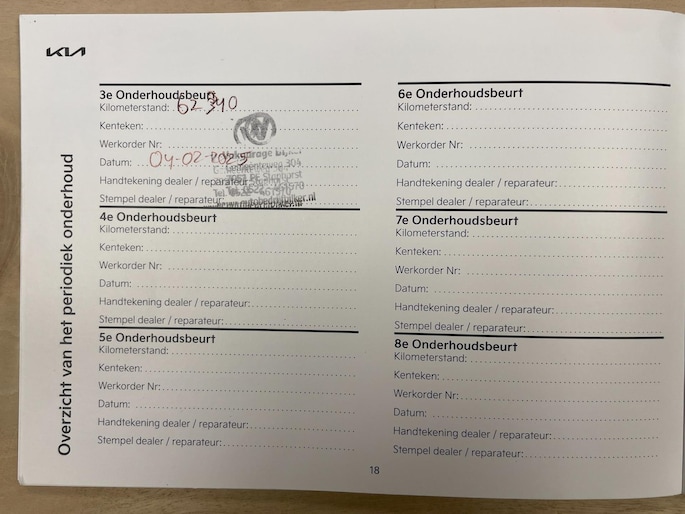 KIA
Overzicht van het periodiek onderhoud
3e Onderhoudsbeurt
Kilometerstand: 62940
Kenteken:
Werkorder Nr:
Datum: 04-02-2025
Handtekening dealer / reparateur:
Stempel dealer / reparateur:
4e Onderhoudsbeurt
Kilometerstand:
Kenteken:
Werkorder Nr:
Datum:
Handtekening dealer / reparateur:
Stempel dealer / reparateur:
5e Onderhoudsbeurt
Kilometerstand:
Kenteken:
Werkorder Nr:
Datum:
Handtekening dealer / reparateur:
Stempel dealer / reparateur:
6e Onderhoudsbeurt
Kilometerstand:
Kenteken:
Werkorder Nr:
Datum:
Handtekening dealer / reparateur:
Stempel dealer / reparateur:
7e Onderhoudsbeurt
Kilometerstand:
Kenteken:
Werkorder Nr:
Datum:
Handtekening dealer / reparateur:
Stempel dealer / reparateur:
8e Onderhoudsbeurt
Kilometerstand:
Kenteken:
Werkorder Nr:
Datum:
Handtekening dealer / reparateur:
Stempel dealer / reparateur:
18